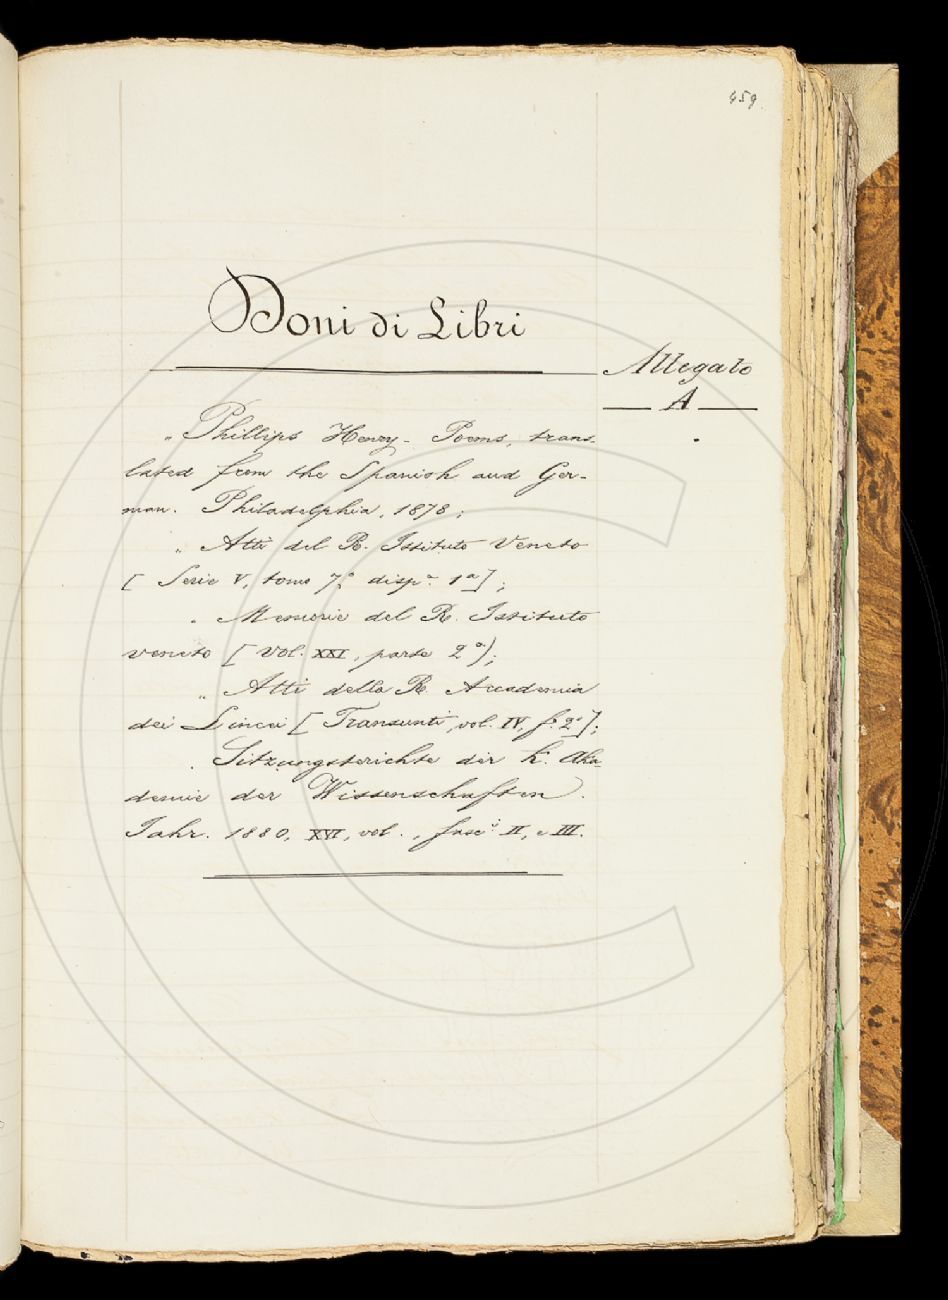 459.
Doni di Libri
Allegato
A
„ Phillips Henry - Poems, trans-
lated from the Spanish and Ger-
man. Philadelphia, 1878;
„ Atti del R. Istituto Veneto
[ Serie V, tomo 7.° disp.ª 1ª];
„ Memorie del R. Istituto
veneto [ Vol. XXI, parte 2ª);
„ Atti della R. Accademia
dei Lincei [ Transunti, vol. IV, f.º 2º];
„ Sitzungsterichte der K. Aka-
demie der Wissenschaften.
Jahr. 1880, XVI, vol., fasc.i II, e III.